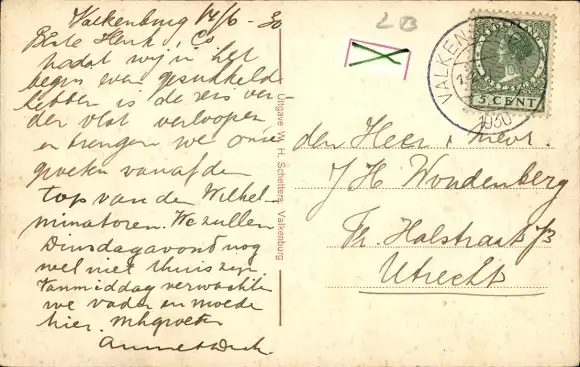 Valkenburg 14/6-30
Beste Henk & Co
nadat wij in het
begin wat gesukkeld
hebben is de reis ver
der vlot verloopen
en brengen we onze
groeten vanaf den
top van den Wilhel
minatoren. We zullen
Dinsdagavond nog
wel niet thuis zijn.
Vanmiddag verwachten
we vader en moeder
hier. mhgroeten
Annie & Dick.
Uitgave W. H. Schelters, Valkenburg
2B
VALKENB
1930
5 CENT
den Heer & Mevr.
J H Wondenberg
Fr. Halstraat
Utrecht